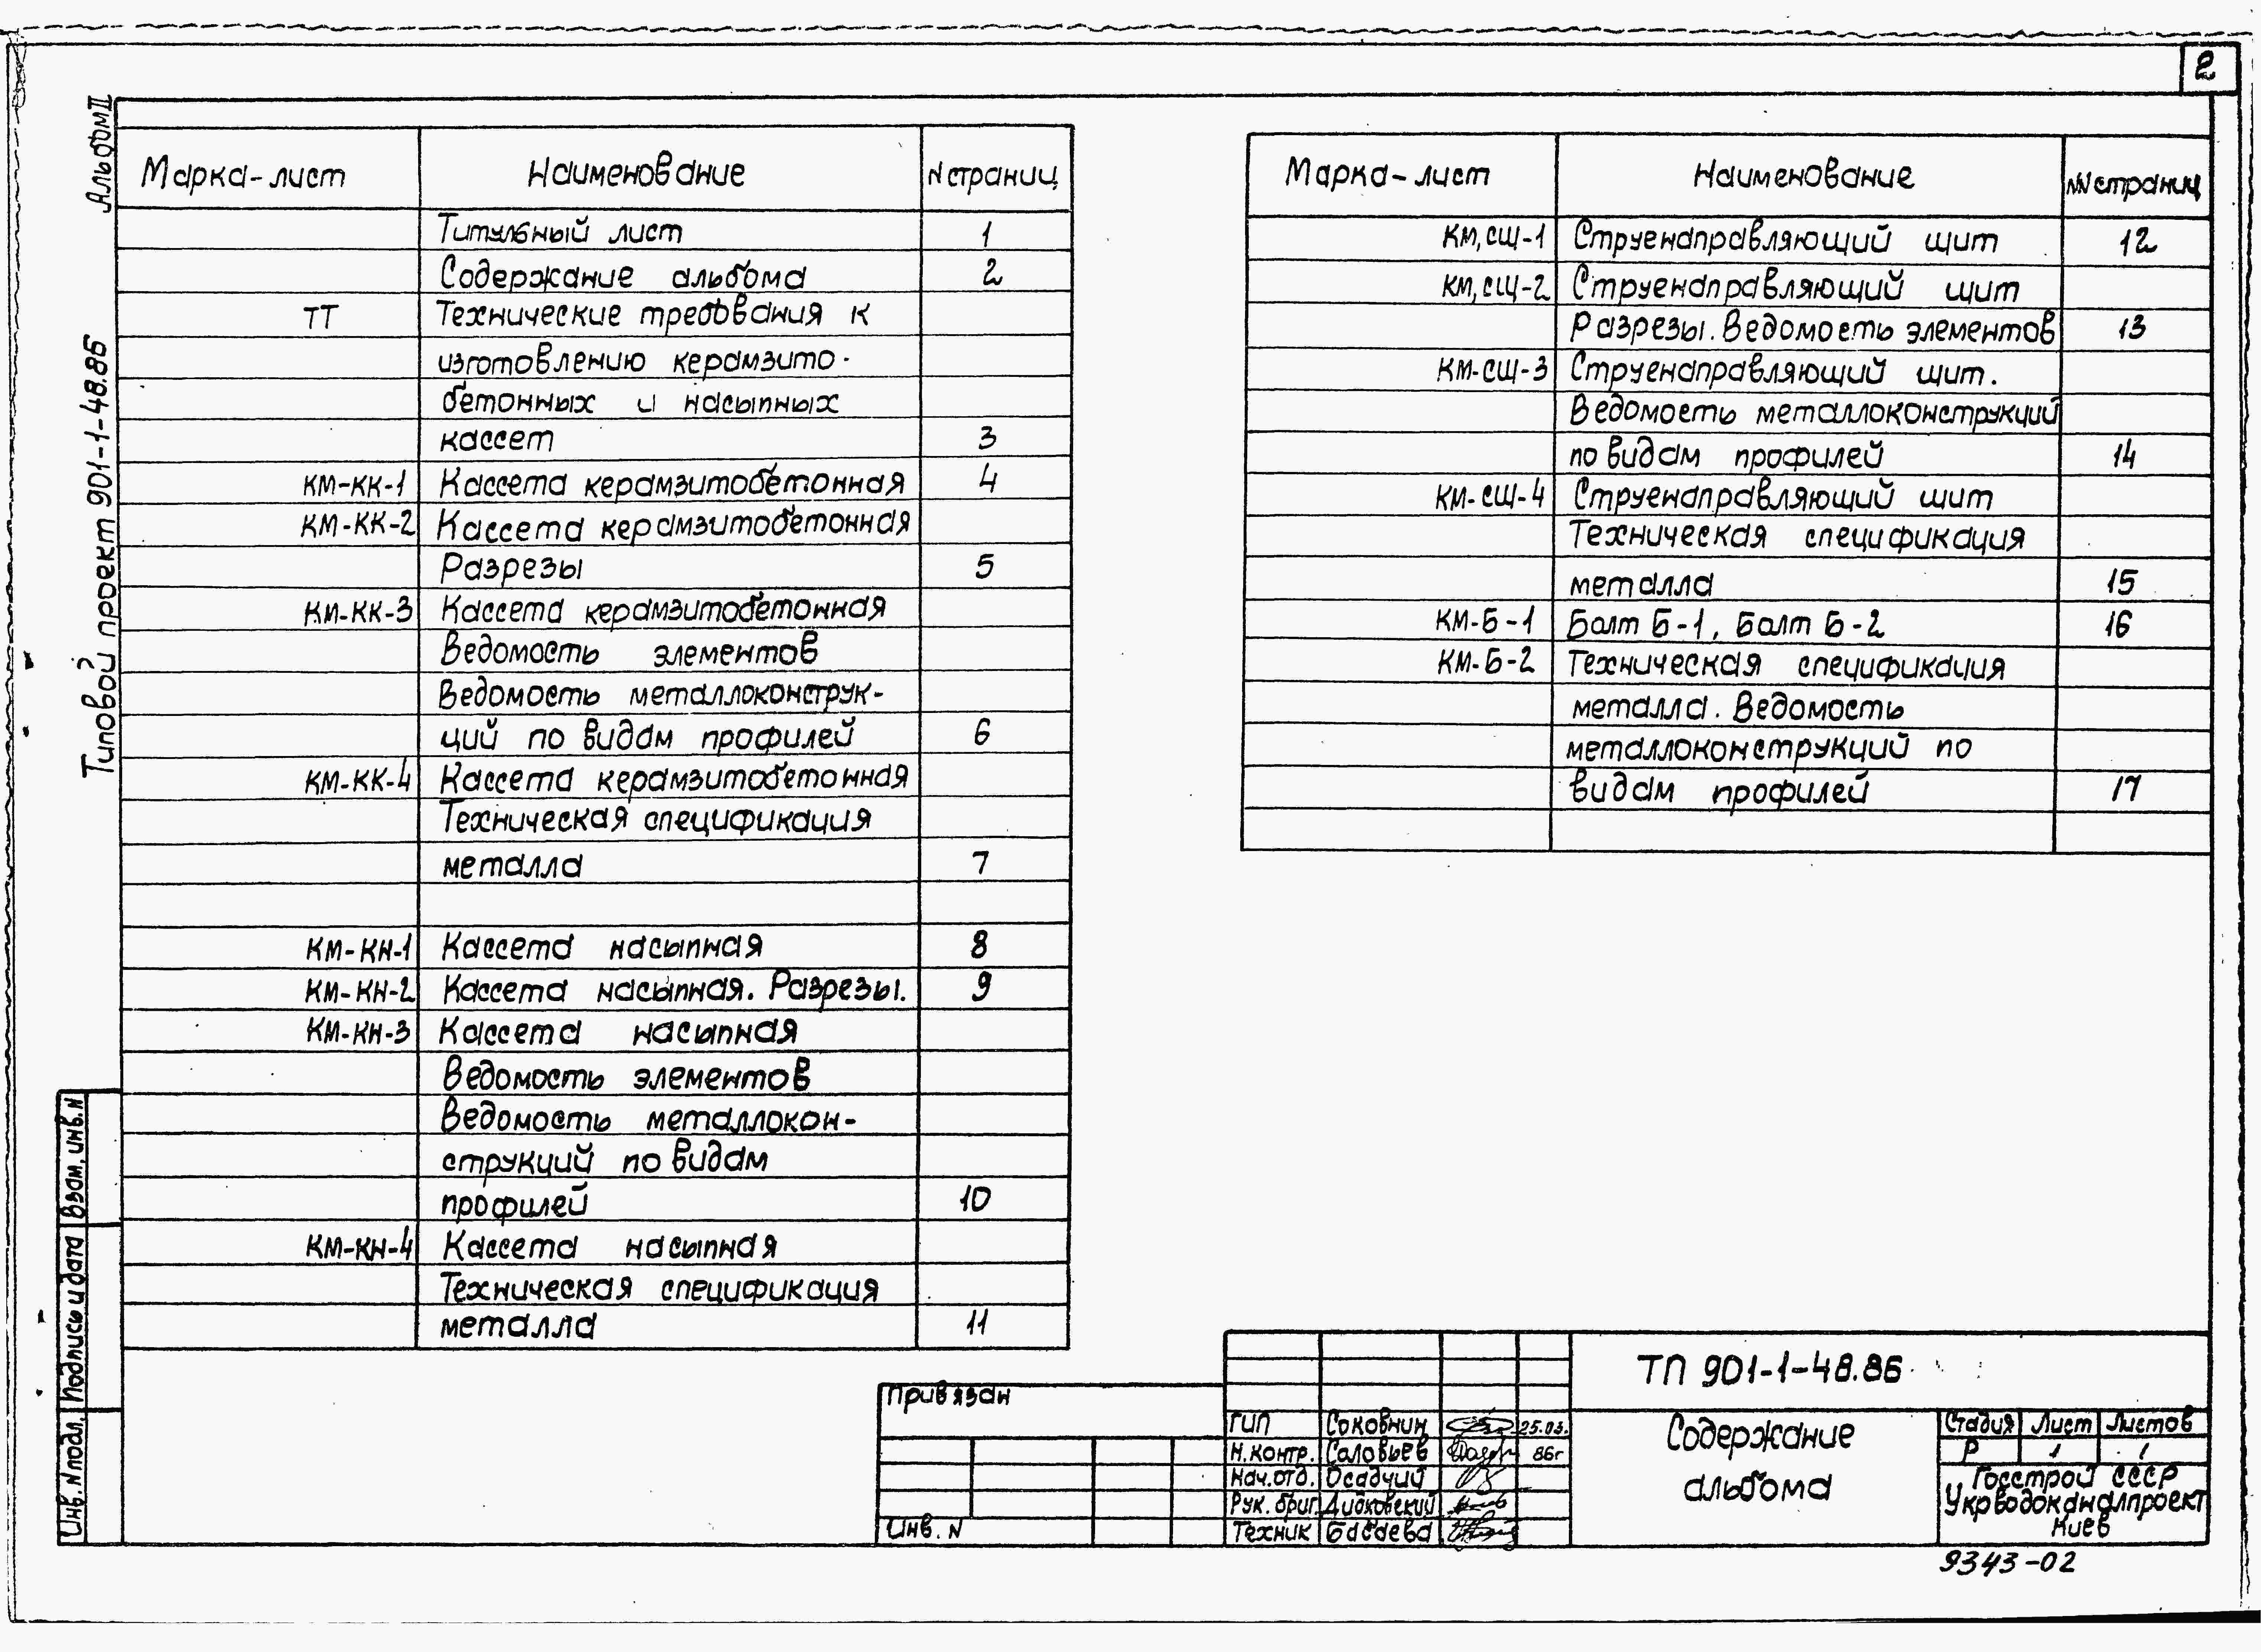 2
Альбом II
Типовой проект 901-1-48.86
Марка-лист Наименование N страниц
Титульный лист 1
Содержание альбома 2
ТТ Технические требования к
изготовлению керамзито-
бетонных и насыпных
кассет 3
КМ-КК-1 Кассета керамзитобетонная 4
КМ-КК-2 Кассета керамзитобетонная
Разрезы 5
КМ-КК-3 Кассета керамзитобетонная
Ведомость элементов
Ведомость металлоконструк-
ций по видам профилей 6
КМ-КК-4 Кассета керамзитобетонная
Техническая спецификация
металла 7
КМ-КН-1 Кассета насыпная 8
КМ-КН-2 Кассета насыпная. Разрезы. 9
КМ-КН-3 Кассета насыпная
Ведомость элементов
Ведомость металлокон-
струкций по видам
профилей 10
КМ-КН-4 Кассета насыпная
Техническая спецификация
металла 11
Марка-лист Наименование NN страниц
КМ,СЩ-1 Струенаправляющий щит 12
КМ,СЩ-2 Струенаправляющий щит
Разрезы. Ведомость элементов 13
КМ-СЩ-3 Струенаправляющий щит.
Ведомость металлоконструкций
по видам профилей 14
КМ-СЩ-4 Струенаправляющий щит
Техническая спецификация
металла 15
КМ-Б-1 Болт Б-1, Болт Б-2 16
КМ-Б-2 Техническая спецификация
металла. Ведомость
металлоконструкций по
видам профилей 17
Инв. N подл. Подпись и дата Взам. инв. N
Привязан
Инв. N
ГИП Соковнин 25.03.
Н.контр. Соловьев 86г
Нач.отд. Осадчий
Рук. бриг. Дидковский
Техник Басаева
ТП 901-1-48.86
Содержание
альбома
Стадия Лист Листов
Р 1 1
Госстрой СССР
Укрводоканалпроект
Киев
9343-02